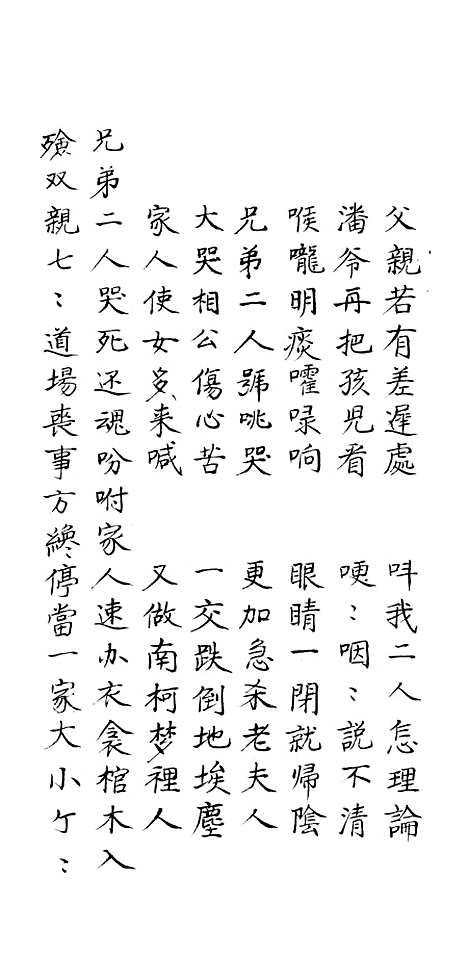 父親若有差遲處　呌我二人怎理論
潘爷再把孩児看　哽〻咽〻說不清
喉嚨明痰嚯㖨响　眼睛一閉就歸陰
兄弟二人號咷哭　更加急杀老夫人
大哭相公傷心苦　一交跌倒地埃塵
家人使女多来喊　又做南柯梦裡人
兄弟二人哭死还魂吩咐家人速办衣衾棺木入
殮双親七〻道場喪事方纔停當一家大小个〻